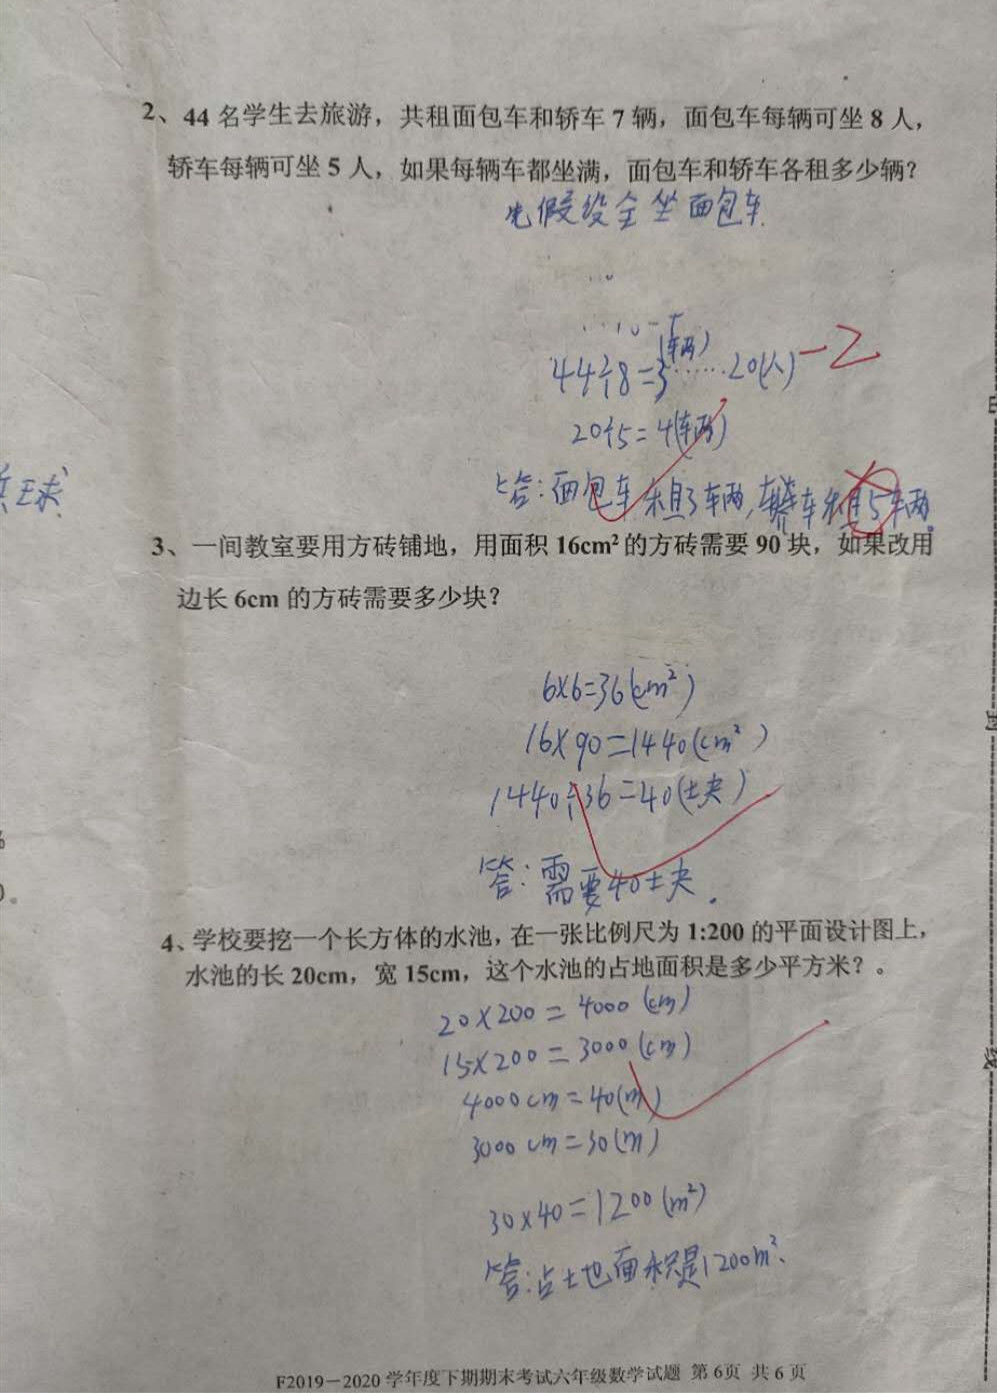 2、44 名学生去旅游，共租面包车和轿车 7 辆，面包车每辆可坐 8 人，
轿车每辆可坐 5 人，如果每辆车都坐满，面包车和轿车各租多少辆？
假设全坐面包车
44÷8=3(辆)……20(人)
-2
20÷5=4(辆)
答：面包车租3辆，轿车租5辆。
球
3、一间教室要用方砖铺地，用面积 16cm² 的方砖需要 90 块，如果改用
边长 6cm 的方砖需要多少块？
6×6=36(cm²)
16×90=1440(cm²)
1440÷36=40(块)
答：需要40块.
4、学校要挖一个长方体的水池，在一张比例尺为 1:200 的平面设计图上，
水池的长 20cm，宽 15cm，这个水池的占地面积是多少平方米？。
20×200=4000(cm)
15×200=3000(cm)
4000cm=40(m)
3000cm=30(m)
30×40=1200(m²)
答：占地面积是1200m².
封
线
F2019－2020 学年度下期期末考试六年级数学试题 第 6页 共 6 页